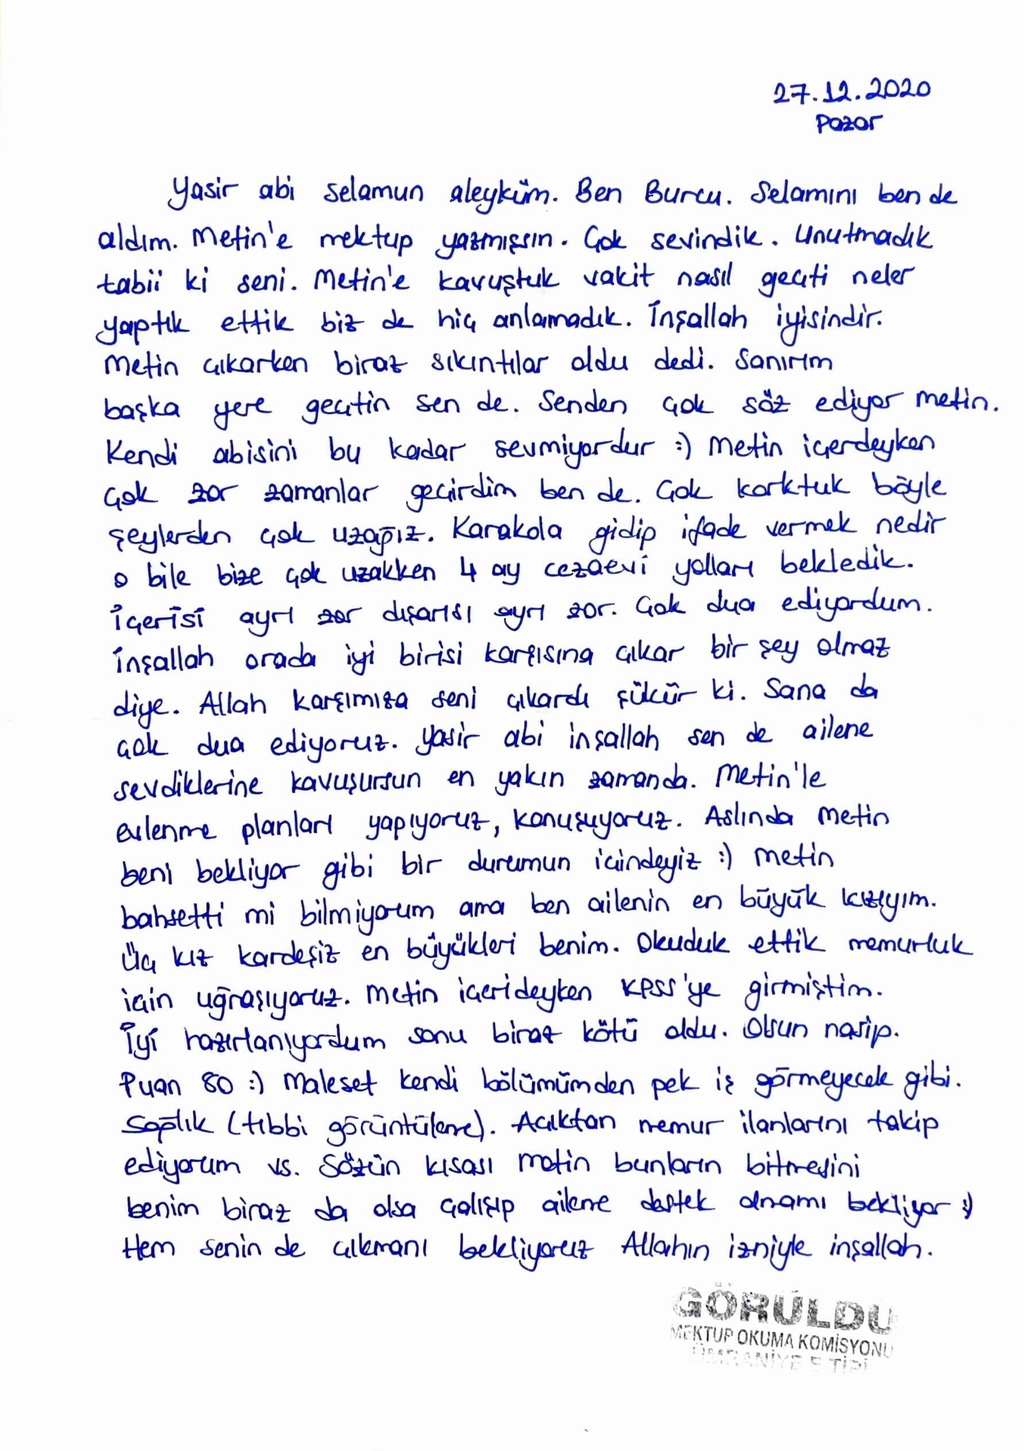 27.12.2020
Pazar
Yasir abi selamun aleyküm. Ben Burcu. Selamını ben de
aldım. Metin'e mektup yazmışsın. Çok sevindik. Unutmadık
tabii ki seni. Metin'e kavuştuk vakit nasıl geçti neler
yaptık ettik biz de hiç anlamadık. İnşallah iyisindir.
Metin çıkarken biraz sıkıntılar oldu dedi. Sanırım
başka yere geçtin sen de. Senden çok söz ediyor Metin.
Kendi abisini bu kadar sevmiyordur :) Metin içerdeyken
çok zor zamanlar geçirdim ben de. Çok korktuk böyle
şeylerden çok uzağız. Karakola gidip ifade vermek nedir
o bile bize çok uzakken 4 ay cezaevi yolları bekledik.
İçerisi ayrı zor dışarısı ayrı zor. Çok dua ediyordum.
İnşallah orada iyi birisi karşısına çıkar bir şey olmaz
diye. Allah karşımıza seni çıkardı şükür ki. Sana da
çok dua ediyoruz. Yasir abi inşallah sen de ailene
sevdiklerine kavuşursun en yakın zamanda. Metin'le
evlenme planları yapıyoruz, konuşuyoruz. Aslında Metin
beni bekliyor gibi bir durumun içindeyiz :) Metin
bahsetti mi bilmiyorum ama ben ailenin en büyük kızıyım.
Üç kız kardeşiz en büyükleri benim. Okuduk ettik memurluk
için uğraşıyoruz. Metin içerideyken KPSS'ye girmiştim.
İyi hazırlanıyordum sonu biraz kötü oldu. Olsun nasip.
Puan 80 :) Malesef kendi bölümümden pek iş görmeyecek gibi.
Sağlık (tıbbi görüntüleme). Açıktan memur ilanlarını takip
ediyorum vs. Sözün kısası Metin bunların bitmesini
benim biraz da olsa çalışıp aileme destek olmamı bekliyor :)
Hem senin de çıkmanı bekliyoruz Allahın izniyle inşallah.
GÖRÜLDÜ
MEKTUP OKUMA KOMİSYONU
ÜMRANİYE E TİPİ